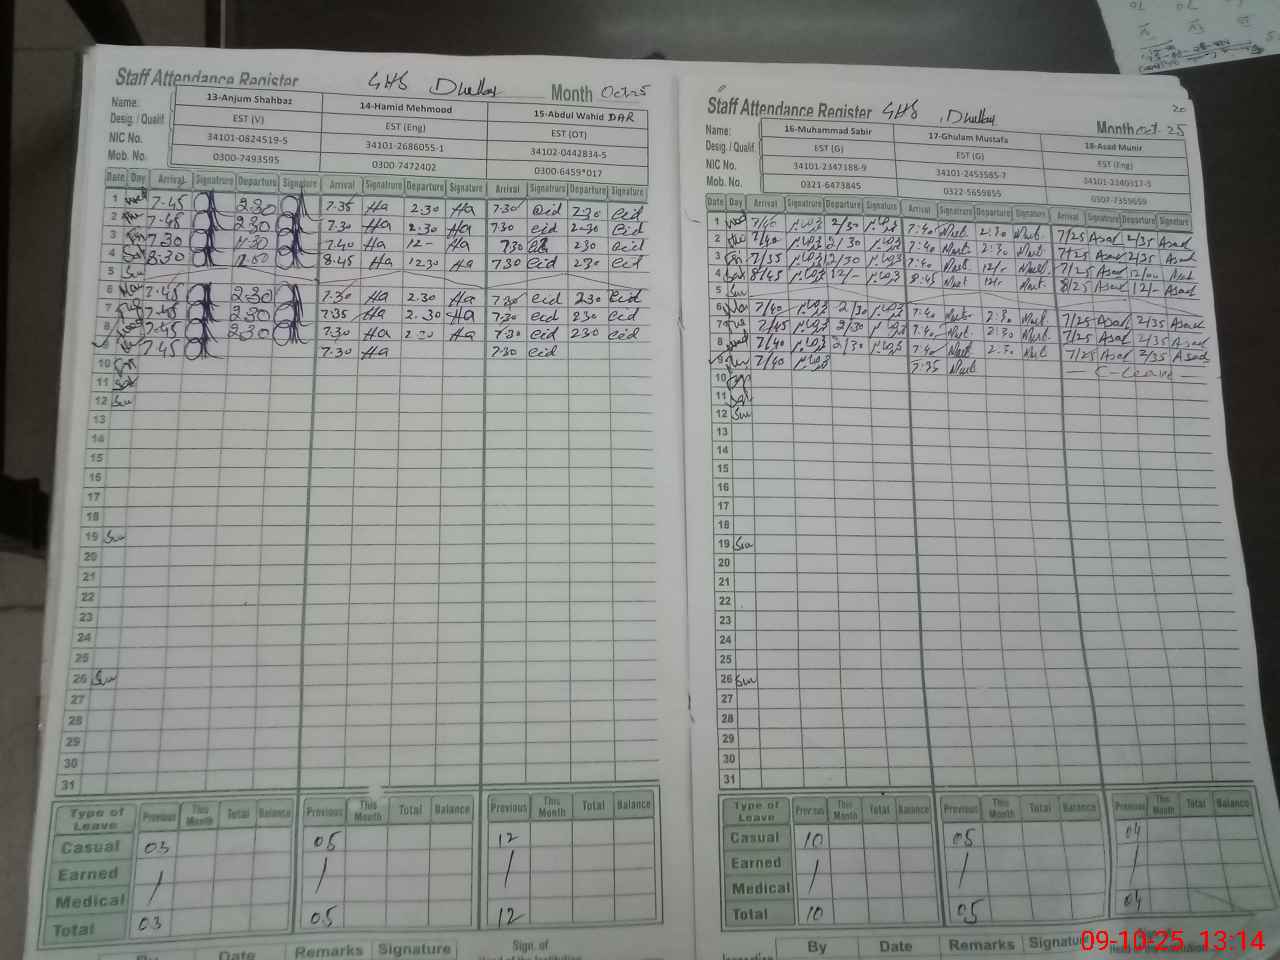 Staff Attendance Register GHS Dhullay Month Oct-25
Name: 13-Anjum Shahbaz 14-Hamid Mehmood 15-Abdul Wahid DAR
Desig. / Qualif EST (V) EST (Eng) EST (OT)
NIC No. 34101-0824519-5 34101-2686055-1 34102-0442834-5
Mob. No. 0300-7493595 0300-7472402 0300-6459*017
Date Day Arrival Signature Departure Signature Arrival Signature Departure Signature Arrival Signature Departure Signature
1 Wed 7.45 2.30 7.35 Ha 2.30 Ha 7.30 eid 2.30 eid
2 7.45 2.30 7.30 Ha 2.30 Ha 7.30 eid 2.30 eid
3 7.30 7.40 Ha 12- Ha 7.30 2.30 eid
4 8.30 8.45 Ha 12.30 Ha 7.30 eid 2.30 eid
5 Sun
6 7.45 2.30 7.30 Ha 2.30 Ha 7.30 eid 2.30 eid
7 7.45 2.30 7.35 Ha 2.30 Ha 7.30 eid 2.30 eid
8 7.45 2.30 7.30 Ha 2.30 Ha 7.30 eid 2.30 eid
9 7.45 7.30 Ha 7.30 eid
10
11
12 Sun
13
14
15
16
17
18
19 Sun
20
21
22
23
24
25
26 Sun
27
28
29
30
31
Type of Leave Previous This Month Total Balance Previous This Month Total Balance Previous This Month Total Balance
Casual 03 05 12
Earned
Medical
Total 03 05 12
By Date Remarks Signature Sign. of
Staff Attendance Register GHS Dhullay Month Oct-25
20
Name: 16-Muhammad Sabir 17-Ghulam Mustafa 18-Asad Munir
Desig. / Qualif EST (G) EST (G) EST (Eng)
NIC No. 34101-2347188-9 34101-2453585-7 34101-2340317-5
Mob. No. 0321-6473845 0322-5659855 0307-7359659
Date Day Arrival Signature Departure Signature Arrival Signature Departure Signature Arrival Signature Departure Signature
1 Wed 7/40 2/30 7:40 Must 2:30 Must 7/25 Asad 2/35 Asad
2 7/40 2/30 7:40 Must 2:30 Must 7/25 Asad 2/35 Asad
3 7/35 12/30 7:40 Must 12/- Must 7/25 Asad 12/00 Asad
4 8/45 12/- 8:45 Must Must 8/25 Asad 12/- Asad
5 Sun
6 7/40 2/30 7:40 Must 2:30 Must 7/25 Asad 2/35 Asad
7 7/45 2/30 7:40 Must 2:30 Must 7/25 Asad 2/35 Asad
8 Wed 7/40 2/30 7:40 Must 2:30 Must 7/25 Asad 2/35 Asad
9 7/40 7:35 Must - C-Leave -
10
11
12 Sun
13
14
15
16
17
18
19 Sun
20
21
22
23
24
25
26 Sun
27
28
29
30
31
Type of Leave Previous This Month Total Balance Previous This Month Total Balance Previous This Month Total Balance
Casual 10 05 04
Earned
Medical
Total 10 05 04
By Date Remarks Signature
09-10-25 13:14